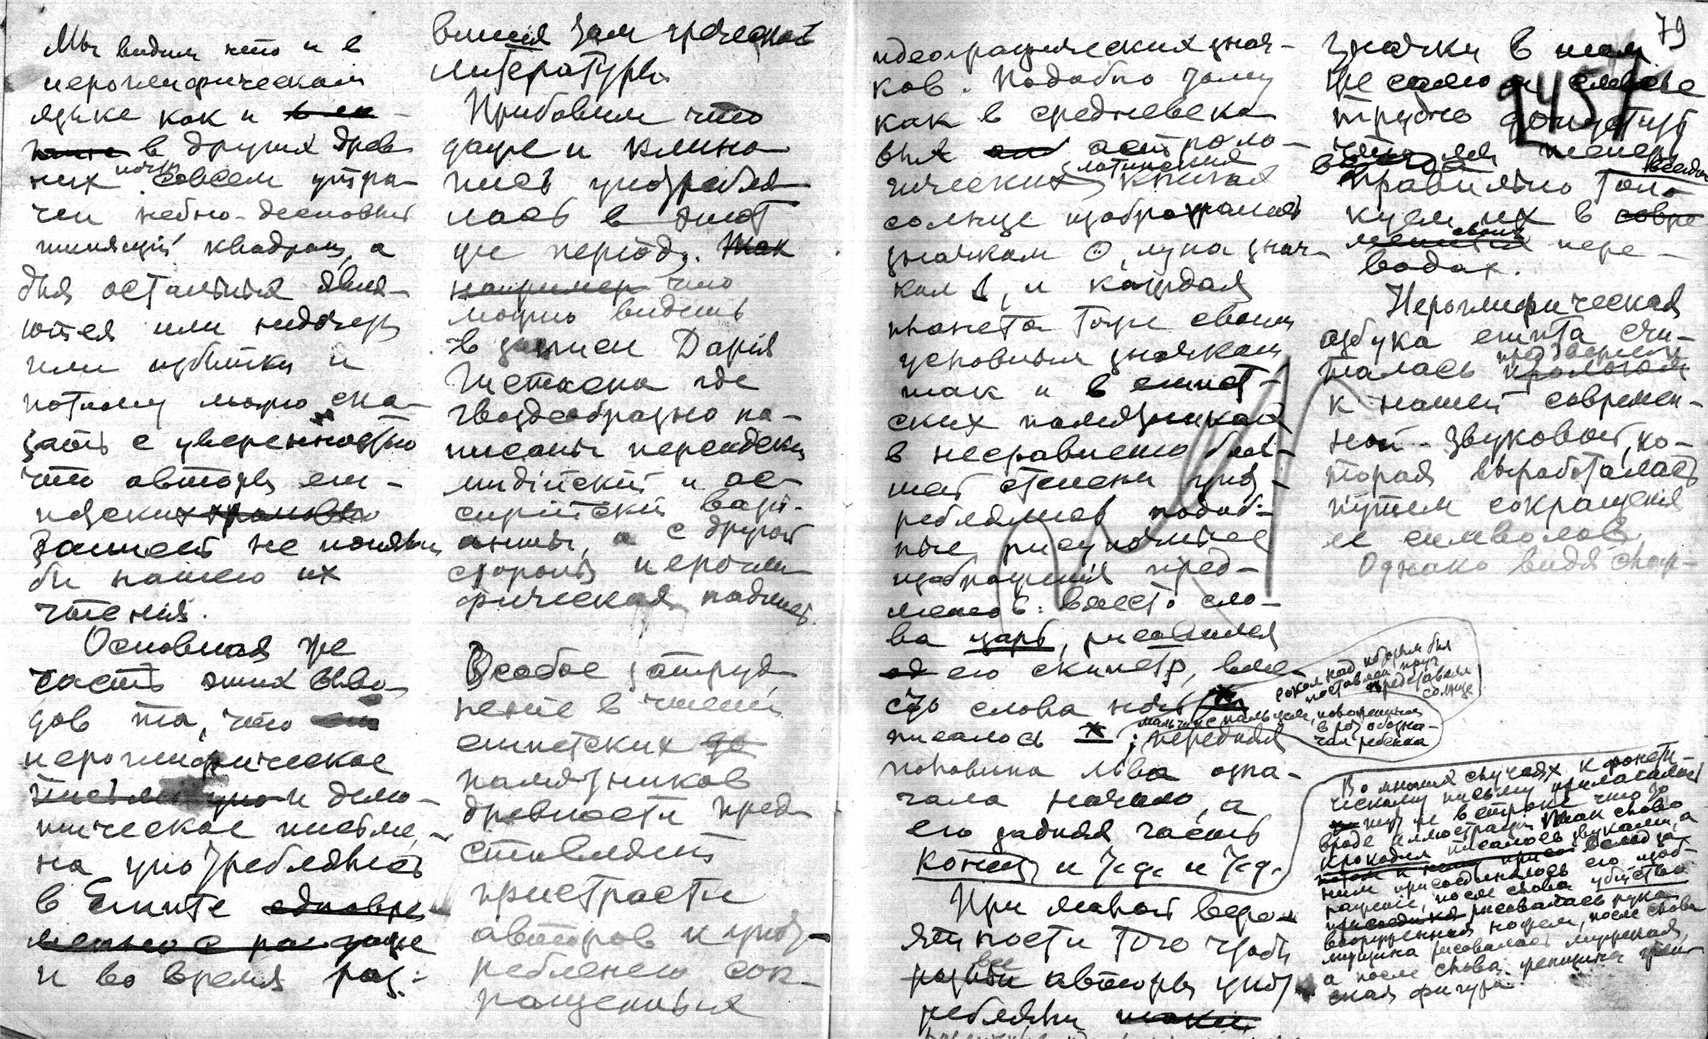 Мы видим что и в
иероглифическом
языке как и в
в других древ
них почти совсем утра-
чен небно-десновый
шипящий квадрат, а
для остальных явля-
ются или недочеты
или избытки и
потому можно ска-
зать с уверенностью
что авторы еги-
петских
записей не поняли
бы нашего их
чтения.
Основная же
часть этих выво-
дов та, что
иероглифическое
и демо-
тическое письме-
на употреблялись
в Египте
и во время раз-
вития там греческой
литературы.
Прибавим что
даже и клино-
пись употребля-
лась в этот
же период. Так
например это
можно видеть
в записи Дария
Гистаспа где
гвоздеобразно на-
писаны персидский
мидийский и ас-
сирийский вари-
анты, а с другой
стороны иерогли-
фическая надпись.
Особое затруд-
нение в чтении
египетских
памятников
древности пред-
ставляет
пристрастие
авторов к упот-
реблению сок-
ращенных
идеографических знач-
ков. Подобно тому
как в средневеко-
вых астроло-
гических латинских книгах
солнце изображалось
значком ☉, луна знач-
ком, и каждая
планета тоже своим
условным значком
так и в египет-
ских памятниках
в несравненно боль-
шей степени упот-
реблялись подоб-
ные рисуночные
изображения пред-
метов: вместо сло-
ва царь, рисовался
его скипетр, вме-
сто слова
писалось ; передняя
половина льва озна-
чала начало, а
его задняя часть
конец и т.д. и т.д.
При малой веро-
ятности того чтобы
все авторы упот-
ребляли такие
79
2457
значки в том
же самом смысле
трудно допустить
что мы теперь
правильно всегда толк-
куем их в
своих пере-
водах.
Иероглифическая
азбука египта счи-
талась предверием
к нашей современ-
ной звуковой, ко-
торая выработалась
путем сокращения
ее символов.
Однако видя
сокол над которым был
поставлен круг
представлял
солнце
мальчик с пальцем, поворенным
в рот обозна-
чал ребенка
Во многих случаях к фонети-
ческому письму прилагалось
тут же в строке что то
вроде иллюстрации. Так слово
крокодил писалось звуками, а
вслед за
ним присоединялось его изоб-
ражение, после слова убийство
рисовалась рука
вооруженная ножом, после слова
мужчина рисовалась мужская,
а после слова женщина жен-
ская фигура.